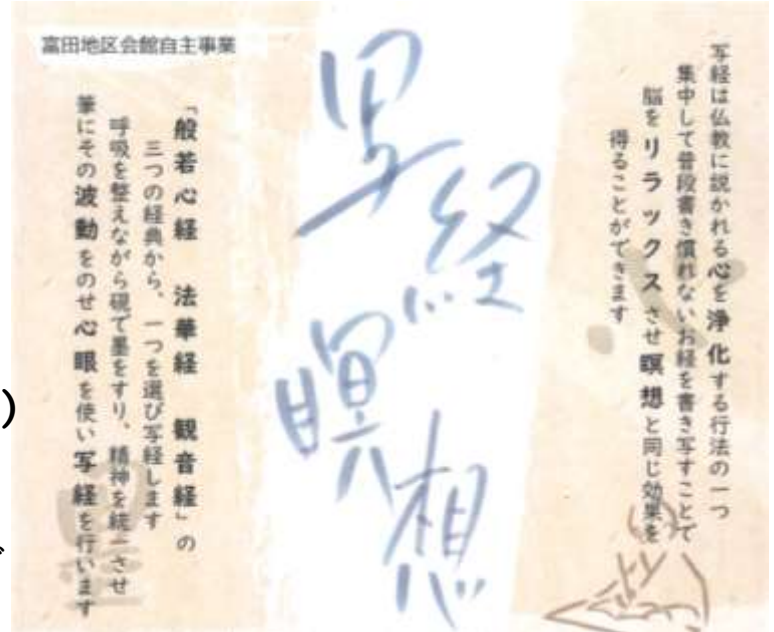 富田地区会館自主事業
写経は仏教に説かれる心を浄化する行法の一つ
集中して普段書き慣れないお経を書き写すことで
脳をリラックスさせ瞑想と同じ効果を
得ることができます
写経
瞑想
「般若心経　法華経　観音経」の
三つの経典から、一つを選び写経します
呼吸を整えながら硯で墨をすり、精神を統一させ
筆にその波動をのせ心眼を使い写経を行います
)